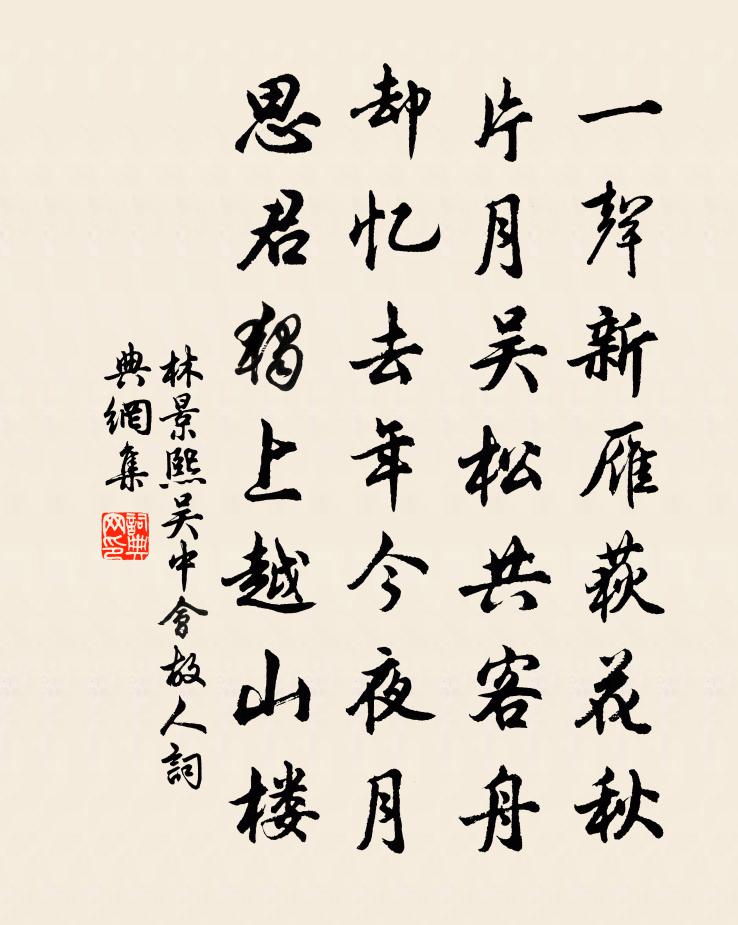 一聲新雁荻花秋
片月吴松共客舟
却忆去年今夜月
思君獨上越山楼
林景熙吴中會故人詞
典網集
詞典
网印